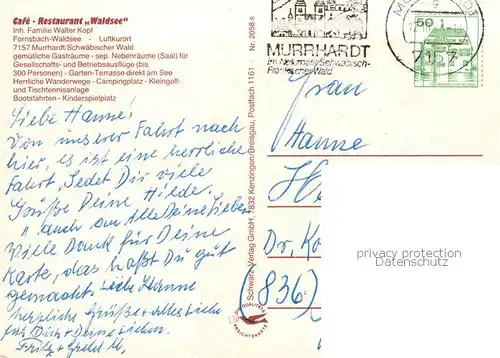 Café - Restaurant „Waldsee"
Inh. Familie Walter Kopf
Fornsbach-Waldsee - Luftkurort
7157 Murrhardt/Schwäbischer Wald
gemütliche Gasträume - sep. Nebenräume (Saal) für
Gesellschafts- und Betriebsausflüge (bis
300 Personen) - Garten-Terrasse direkt am See
Herrliche Wanderwege - Campingplatz - Kleingolf-
und Tischtennisanlage
Bootsfahrten - Kinderspielplatz
Liebe Hanne!
Von unserer Fahrt nach
hier, es ist eine herrliche
Fahrt, sedet Dir viele
Grüße Deine Hilde.
" auch an Alle Deine Lieben
Vielen Dank für Deine
Karte, das hast Du gut
gemacht. Liebe Hanne
herzliche Grüße + alles Liebe
für Dich + Deine Lieben.
Fritz +
Schwarz-Verlag GmbH, 7832 Kenzingen/Breisgau, Postfach 1161 · Nr. 2058 s
QUALITÄTS
ANSICHTSKARTE
MURRHARDT
Im Naturpark Schwäbisch-
Fränkischer Wald
7157
50
Frau
Hanne
Dr. Ko
(836)
privacy protection
Datenschutz